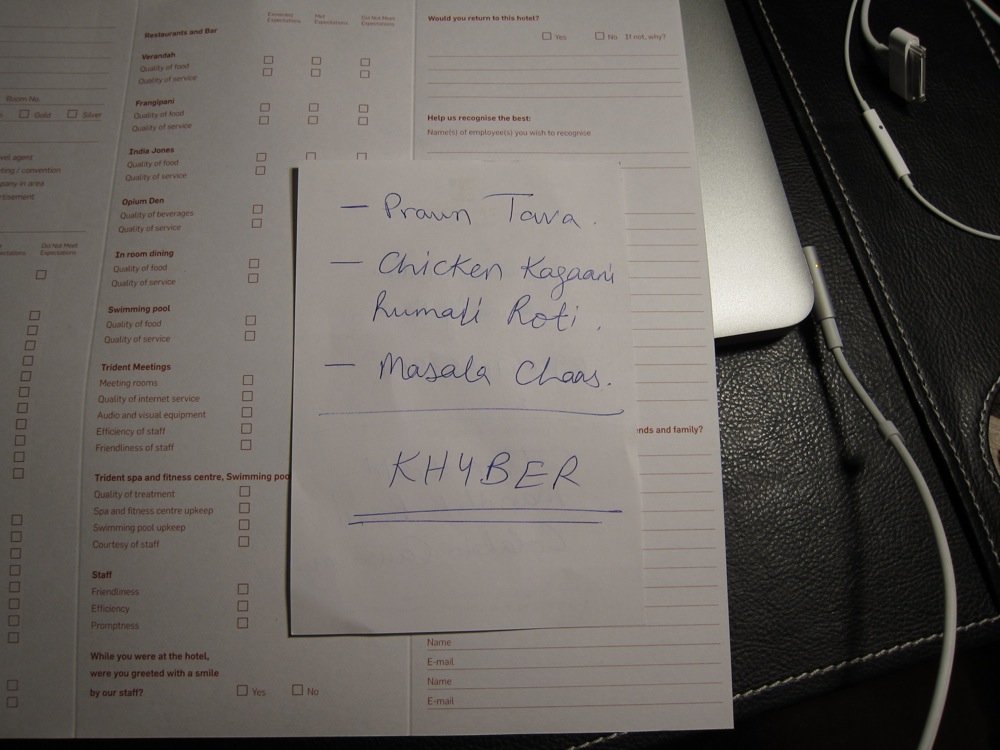 Room No.
Gold Silver
vel agent
eting / convention
pany in area
rtisement
Did Not Meet
Expectations
Exceeded Expectations
Met Expectations
Did Not Meet Expectations
Restaurants and Bar
Verandah
Quality of food
Quality of service
Frangipani
Quality of food
Quality of service
India Jones
Quality of food
Quality of service
Opium Den
Quality of beverages
Quality of service
In room dining
Quality of food
Quality of service
Swimming pool
Quality of food
Quality of service
Trident Meetings
Meeting rooms
Quality of internet service
Audio and visual equipment
Efficiency of staff
Friendliness of staff
Trident spa and fitness centre, Swimming poo
Quality of treatment
Spa and fitness centre upkeep
Swimming pool upkeep
Courtesy of staff
Staff
Friendliness
Efficiency
Promptness
While you were at the hotel,
were you greeted with a smile
by our staff?
Yes No
Would you return to this hotel?
Yes No If not, why?
Help us recognise the best:
Name(s) of employee(s) you wish to recognise
ends and family?
Name
E-mail
Name
E-mail
— Prawn Tava.
— Chicken Kagaani
Rumali Roti.
— Masala Chaas.
KHYBER